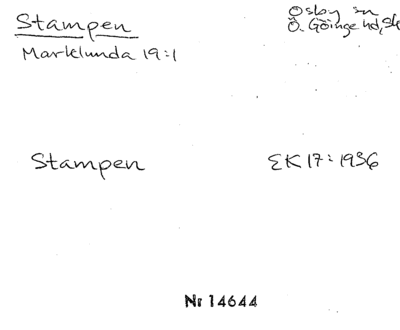 Stampen
Osby sn
Ö. Göinge hd, Sk
Marklunda 19:1
Stampen
EK 17:1936
Nr 14644